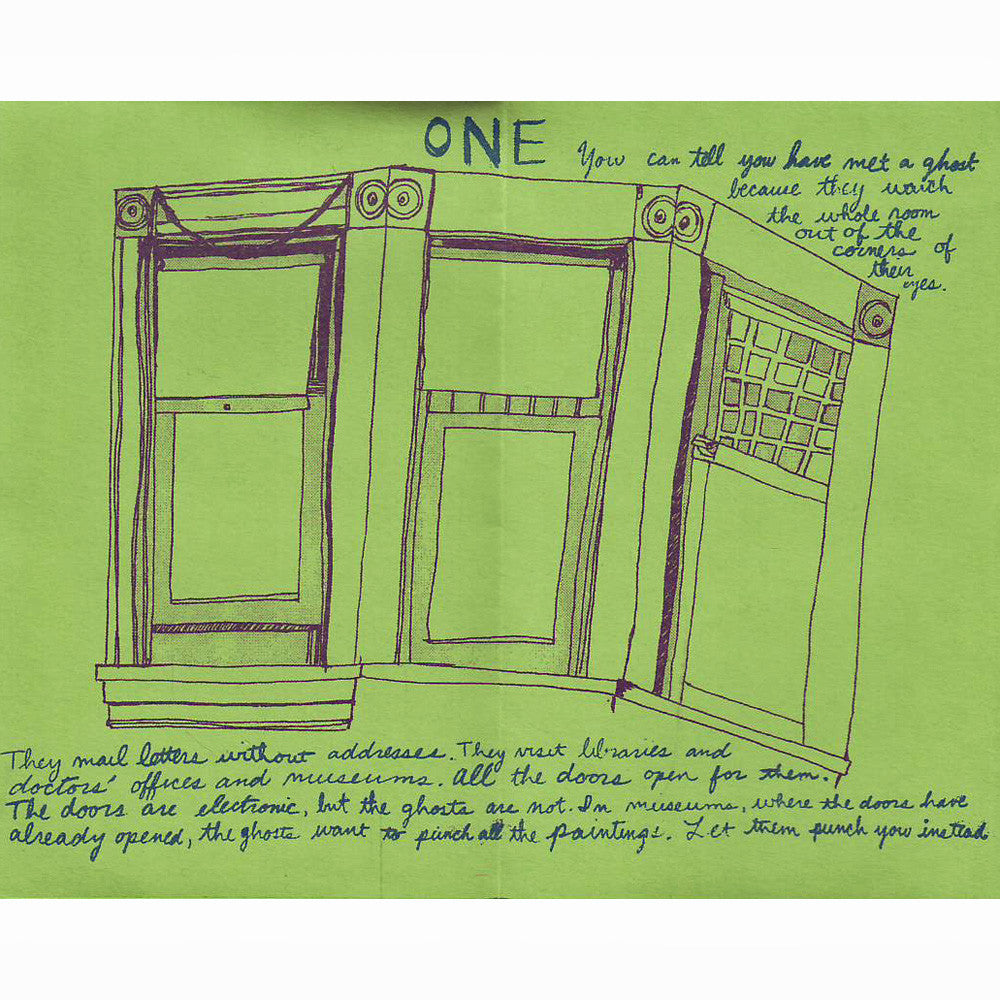 ONE
You can tell you have met a ghost
because they watch
the whole room
out of the
corners of
their
eyes.
They mail letters without addresses. They visit libraries and
doctors' offices and museums. All the doors open for them.
The doors are electronic, but the ghosts are not. In museums, where the doors have
already opened, the ghosts want to punch all the paintings. Let them punch you instead